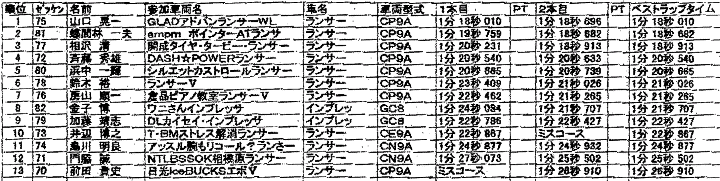 順位 ゼッケン 名前 参加車両名 車名 車両型式 1本目 PT 2本目 PT ベストラップタイム
1 75 山口 晃一 GLADアドバンランサーWL ランサー CP9A 1分 18秒 010 1分 18秒 696 1分 18秒 010
2 81 一夫 ampm ポインターA1ランサ ランサー CP9A 1分 19秒 759 1分 18秒 682 1分 18秒 682
3 77 相沢 満 開成タイヤ・タービー・ランサー ランサー CP9A 1分 20秒 231 1分 18秒 913 1分 18秒 913
4 72 斉藤 秀雄 DASH☆POWERランサー ランサー CP9A 1分 20秒 540 1分 20秒 633 1分 20秒 540
5 80 浜中 一 シルエットカストロールランサー ランサー CP9A 1分 20秒 665 1分 20秒 739 1分 20秒 665
6 78 鈴木 裕 ランサーV ランサー CP9A 1分 23秒 409 1分 21秒 026 1分 21秒 026
7 76 奥山 順一 倉品ピアノ教室ランサーV ランサー CP9A 1分 22秒 462 1分 21秒 265 1分 21秒 265
8 82 金子 博 ワニさんインプレッサ インプレッ GC8 1分 24秒 094 1分 21秒 707 1分 21秒 707
9 79 加藤 靖志 DLカイセイ・インプレッサ インプレッ GC8 1分 22秒 786 1分 22秒 427 1分 22秒 427
10 73 井辺 博之 T・BMストレス解消ランサー ランサー CE9A 1分 22秒 867 ミスコース 1分 22秒 867
11 74 島川 明良 アッスル腕もリコールでランさー ランサー CN9A 1分 24秒 877 1分 24秒 932 1分 24秒 877
12 71 門脇 誠 NTLBSSOK相模原ランサー ランサー CN9A 1分 27秒 073 1分 25秒 502 1分 25秒 502
13 70 前田 貴史 日光IceBUCKSエボV ランサー CP9A ミスコース 1分 26秒 910 1分 26秒 910